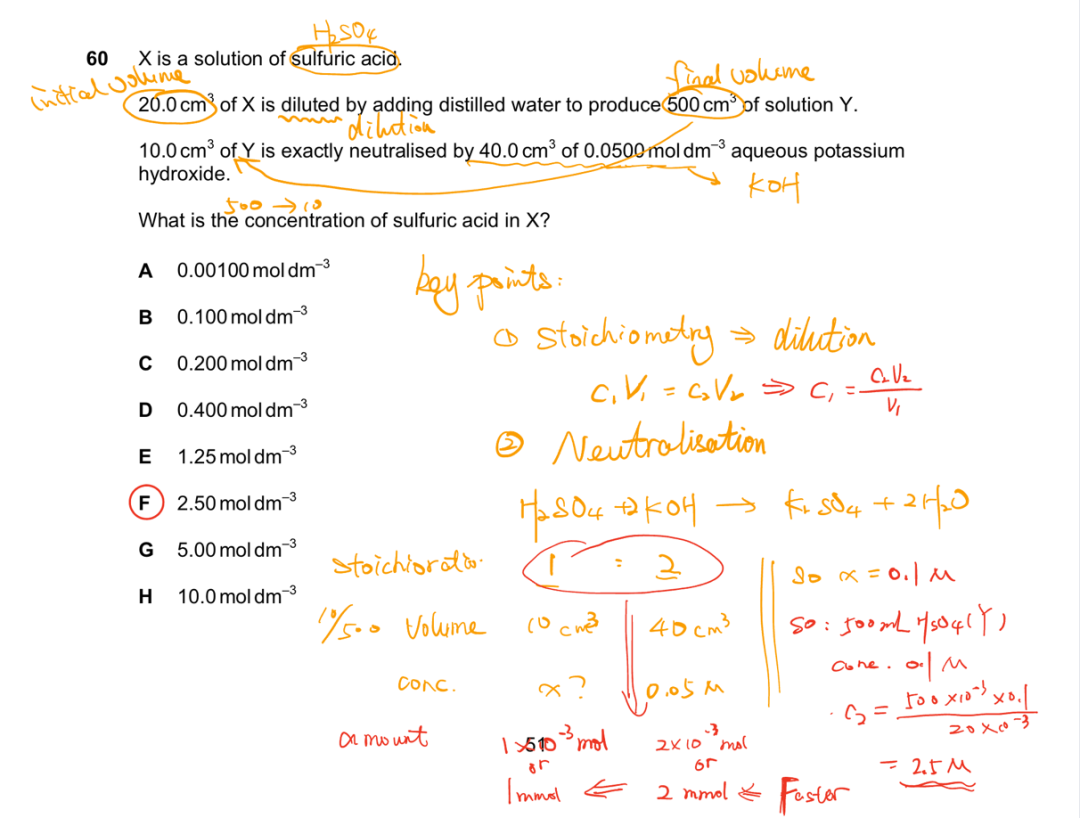 H₂SO₄
60 X is a solution of sulfuric acid.
initial volume
final volume
20.0 cm³ of X is diluted by adding distilled water to produce 500 cm³ of solution Y.
dilution
10.0 cm³ of Y is exactly neutralised by 40.0 cm³ of 0.0500 mol dm⁻³ aqueous potassium
hydroxide.
KOH
500 → 10
What is the concentration of sulfuric acid in X?
A 0.00100 mol dm⁻³
B 0.100 mol dm⁻³
C 0.200 mol dm⁻³
D 0.400 mol dm⁻³
E 1.25 mol dm⁻³
F 2.50 mol dm⁻³
G 5.00 mol dm⁻³
H 10.0 mol dm⁻³
key points:
① Stoichiometry ⇒ dilution
C₁V₁ = C₂V₂ ⇒ C₁ = C₂V₂/V₁
② Neutralisation
H₂SO₄ + 2KOH → K₂SO₄ + 2H₂O
stoichioratio. 1 : 2
10/500 Volume 10 cm³ 40 cm³
conc. x? 0.05 M
amount 1×10⁻³ mol 2×10⁻³ mol
or or
1 mmol ⇐ 2 mmol ⇐ Faster
So x = 0.1 M
So: 500 mL H₂SO₄(Y)
conc. 0.1 M
C₂ = 500×10⁻³×0.1/20×10⁻³
= 2.5 M